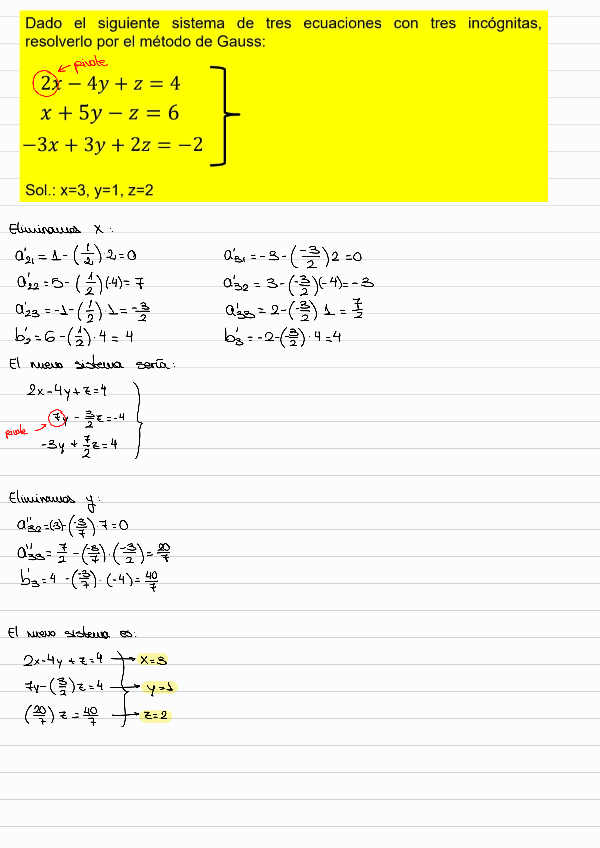 Dado el siguiente sistema de tres ecuaciones con tres incógnitas,
resolverlo por el método de Gauss:
pivote
2x − 4y + z = 4
x + 5y − z = 6
−3x + 3y + 2z = −2
Sol.: x=3, y=1, z=2
Eliminamos x:
a'21 = 1 - (1/2) 2 = 0
a'22 = 5 - (1/2)(-4) = 7
a'23 = -1 - (1/2) 1 = -3/2
b'2 = 6 - (1/2) · 4 = 4
a'31 = -3 - (-3/2) 2 = 0
a'32 = 3 - (-3/2)(-4) = -3
a'33 = 2 - (-3/2) 1 = 7/2
b'3 = -2 - (3/2) · 4 = 4
El nuevo sistema sería:
2x - 4y + z = 4
7y - 3/2 z = -4
pivote
-3y + 7/2 z = 4
Eliminamos y:
a''32 = (-3) - (-3/7) · 7 = 0
a''33 = 7/2 - (-3/7) · (-3/2) = 20/7
b'3 = 4 - (-3/7) · (-4) = 40/7
El nuevo sistema es:
2x - 4y + z = 4 → x=3
7y - (3/2) z = 4 → y=1
(20/7) z = 40/7 → z=2